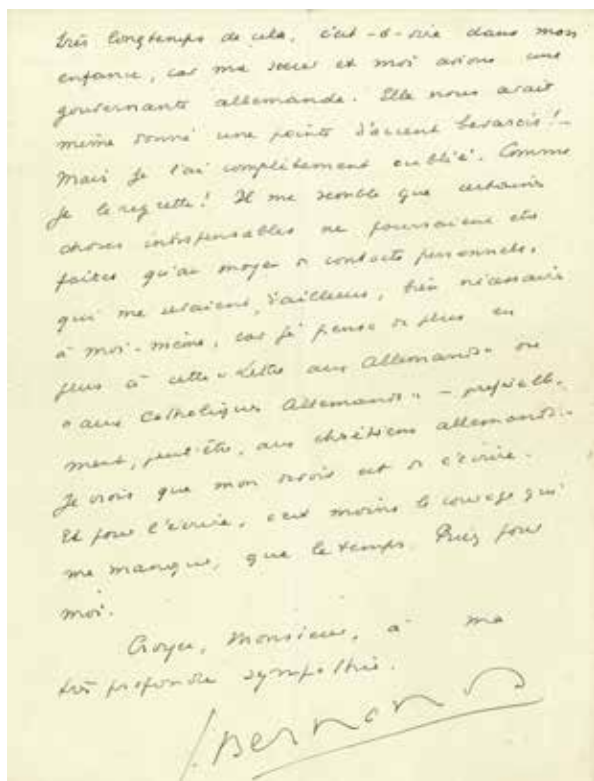 très longtemps de cela, c'est-à-dire dans mon
enfance, car ma sœur et moi avions une
gouvernante allemande. Elle nous avait
même donné une pointe d'accent bavarois! -
Mais je l'ai complètement oublié. Comme
je le regrette! Il me semble que certaines
choses indispensables ne pourraient être
faites qu'au moyen de contacts personnels,
qui me seraient, d'ailleurs, très nécessaires
à moi-même, car je pense de plus en
plus à cette « Lettre aux Allemands » ou
« aux Catholiques Allemands » -
ment, peut-être, aux chrétiens allemands. -
Je crois que mon devoir est de l'écrire.
Et pour l'écrire, c'est moins le courage qui
me manque, que le temps. Priez pour
moi.
Croyez, Monsieur, à ma
très profonde sympathie.
Bernanos